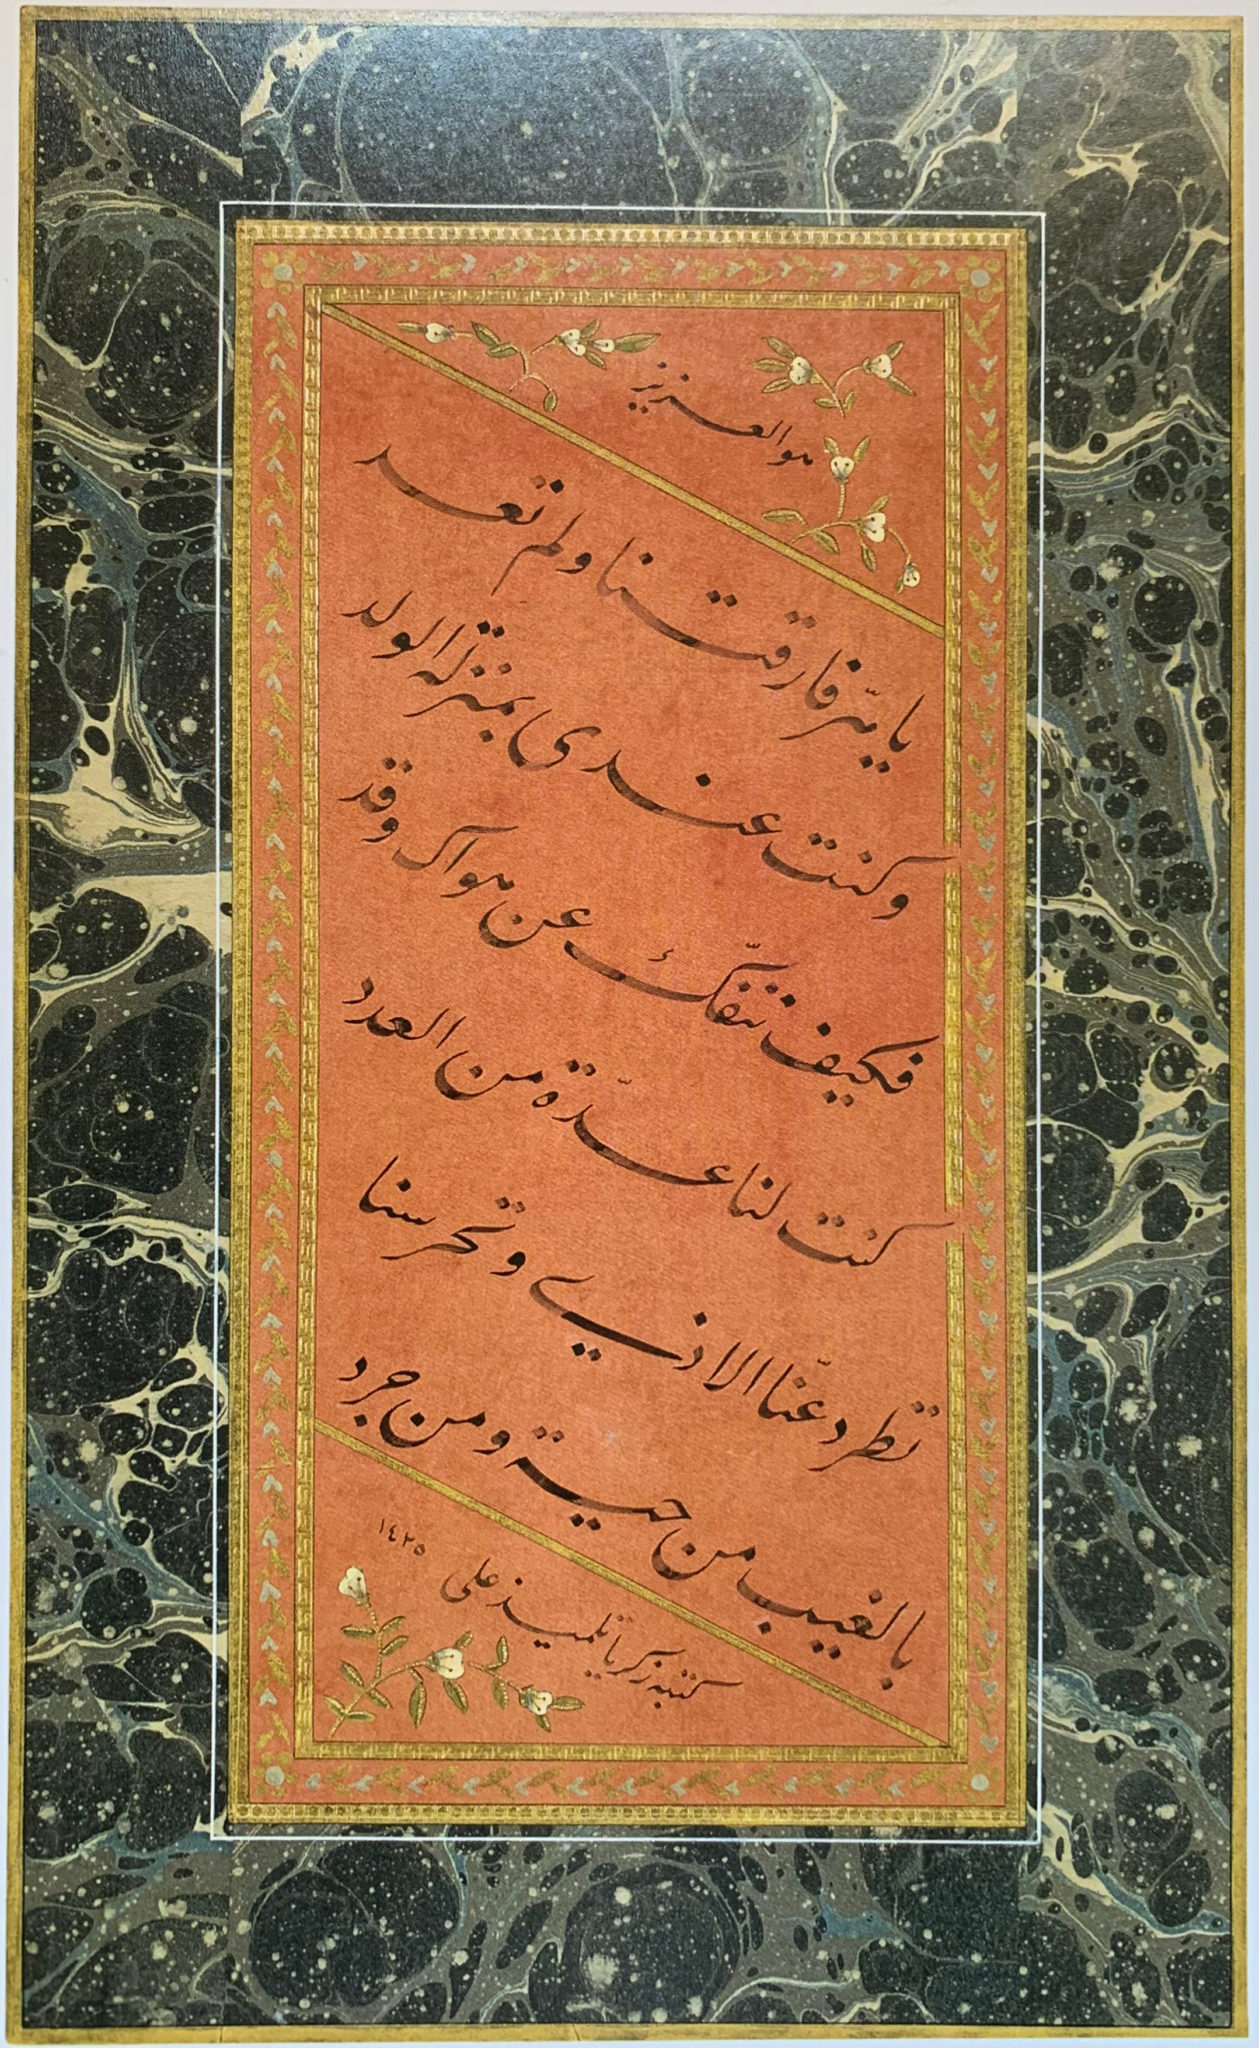 هو العزيز
يا هرّ فارقتنا ولم تعد
وكنت عندى بمنزلة الولد
فكيف تنفكّ عن هواك وقد
كنت لنا عدّة من العدد
تطرد عنّا الاذى وتحرسنا
بالغيب من حية ومن جرد
كتبه زكريا تلميذ على
١٤٢٥